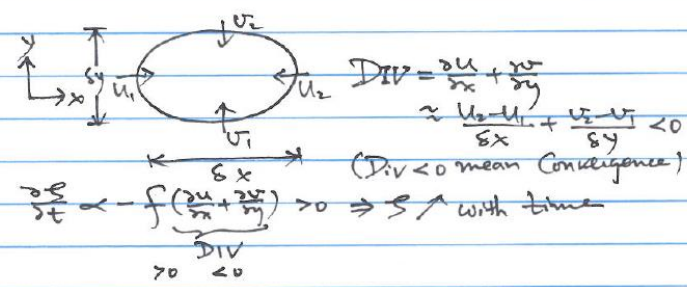 v₂
y
δy
x
u₁
u₂
v₁
δx
DIV = ∂u/∂x + ∂v/∂y
≈ (u₂-u₁)/δx + (v₂-v₁)/δy < 0
(Div < 0 mean Convergence)
∂ζ/∂t ∝ - f (∂u/∂x + ∂v/∂y) > 0 ⇒ ζ ↗ with time
DIV
>0 <0